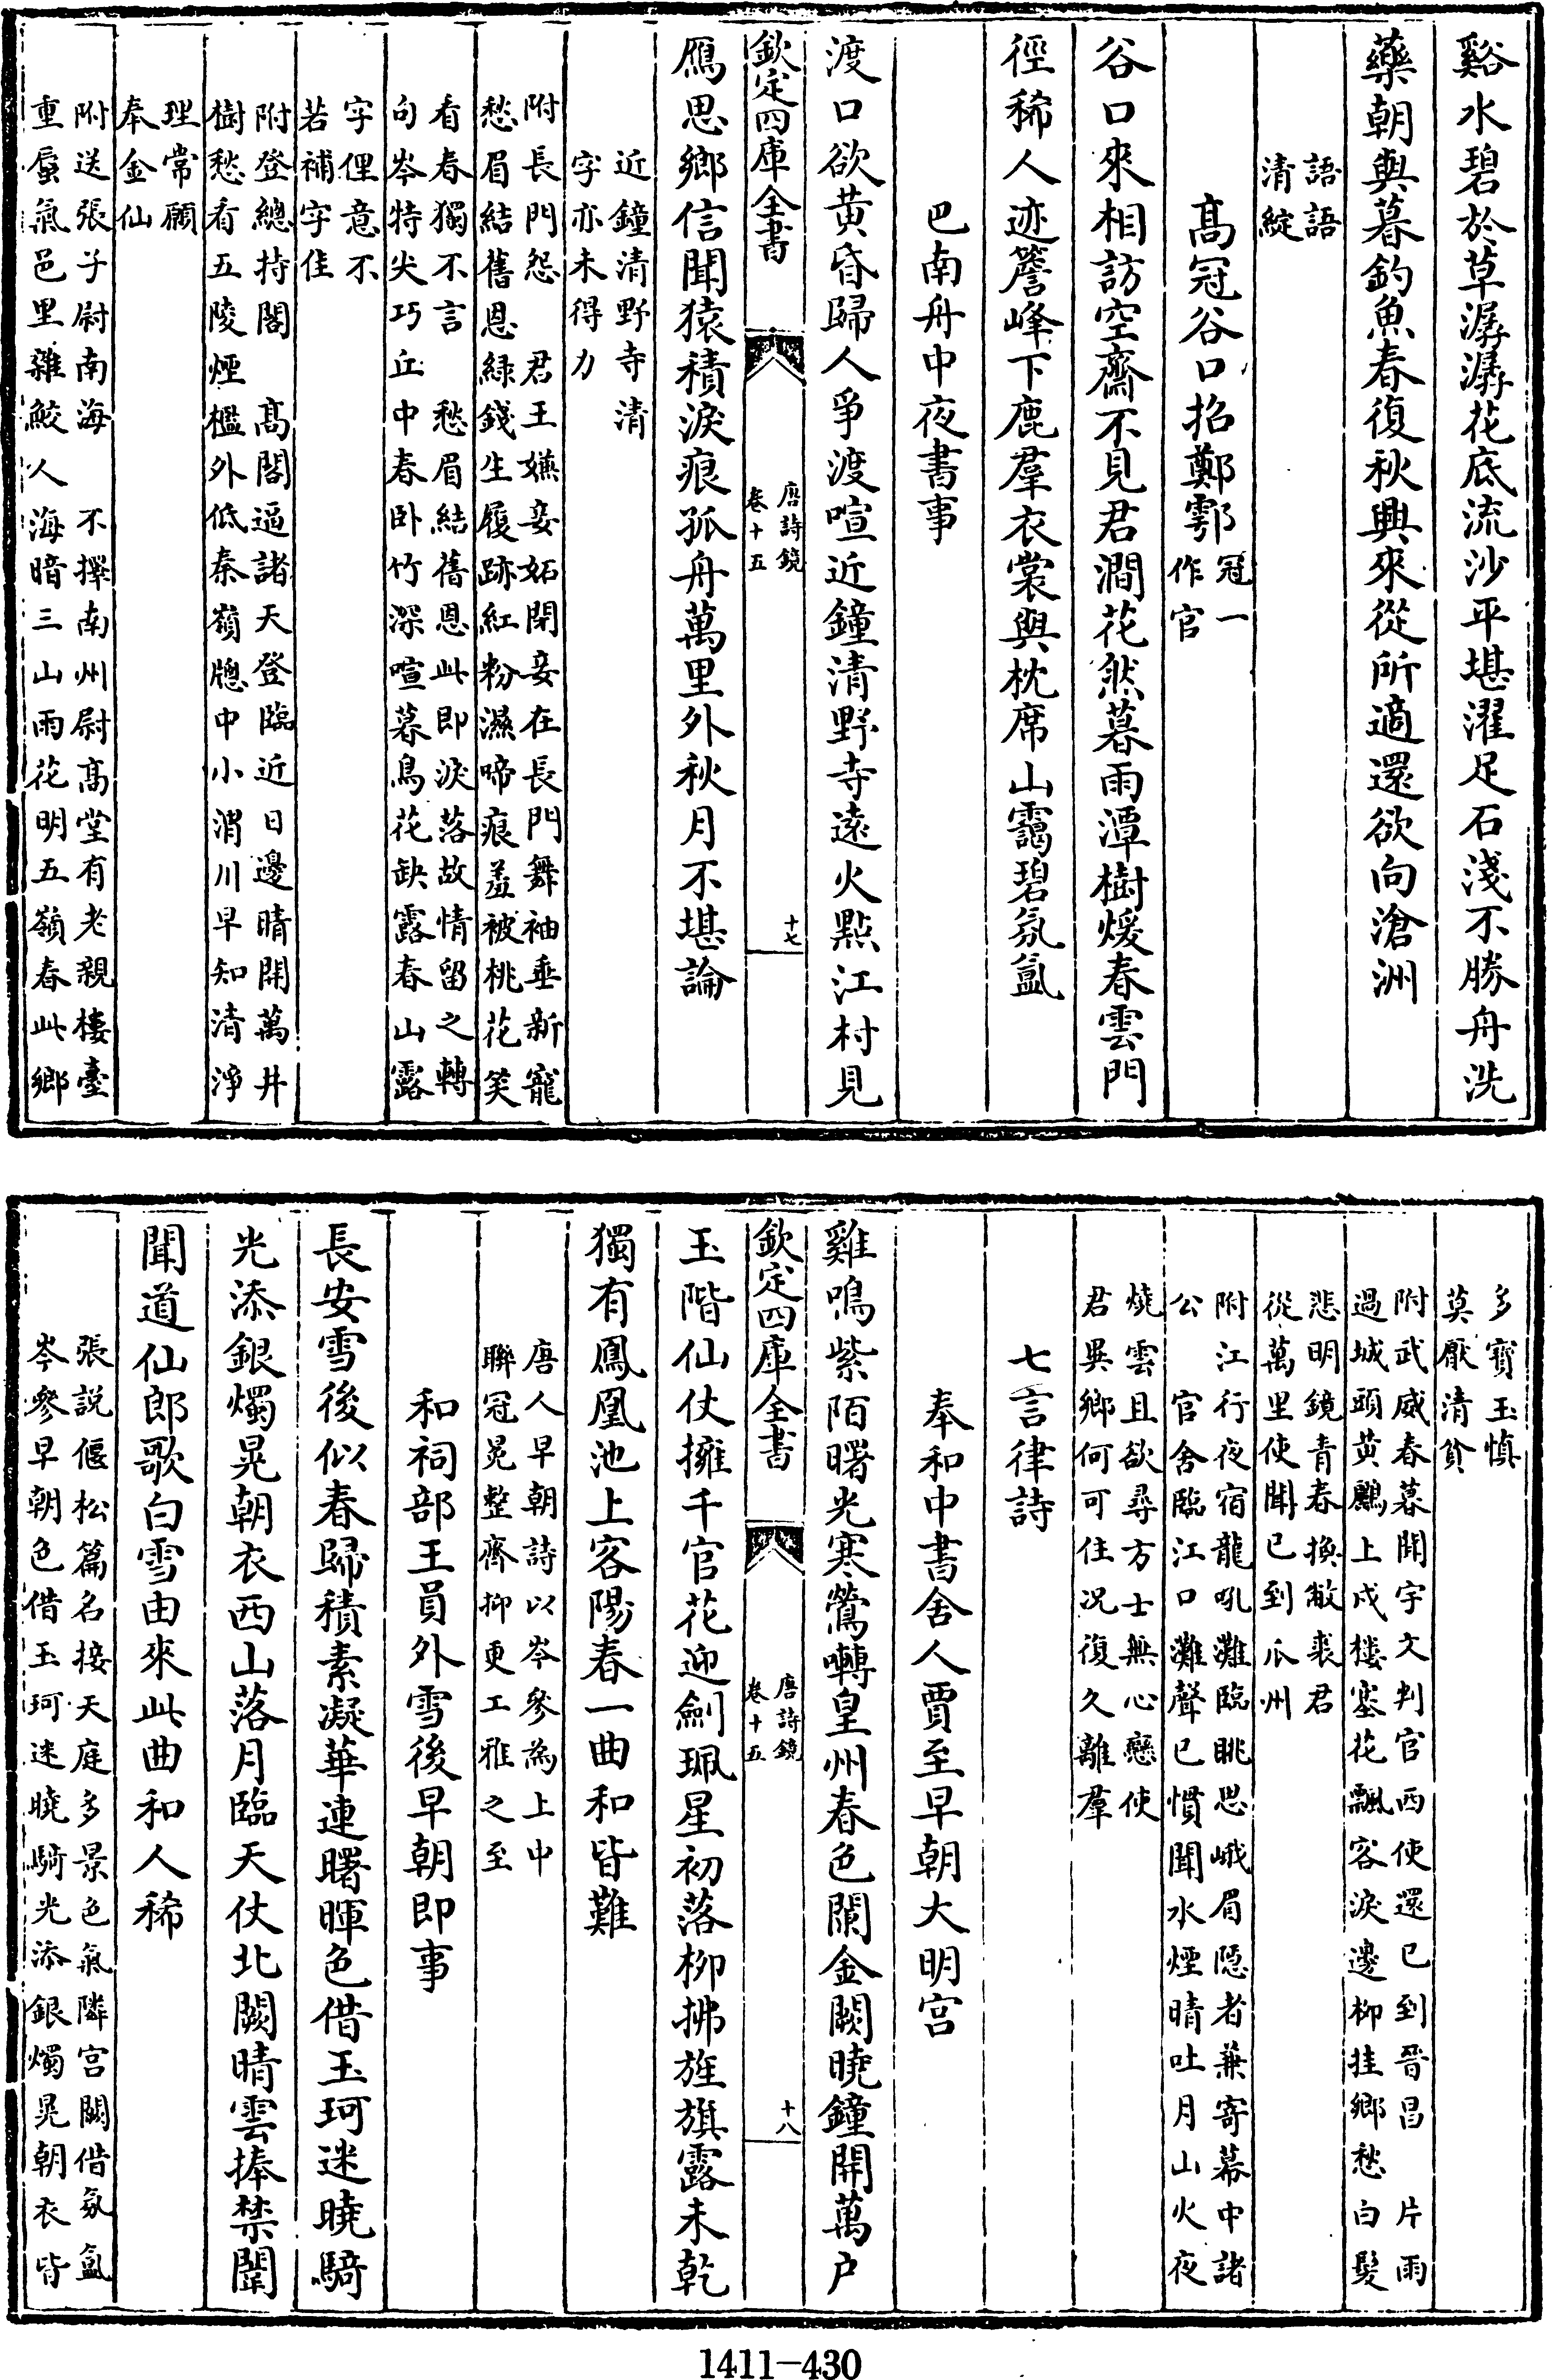 谿水碧於草潺潺花底流沙平堪濯足石淺不勝舟洗
藥朝與暮釣魚春復秋興來從所適還欲向滄洲
語語
清綻
高冠谷口招鄭鄠冠一
作官
谷口來相訪空齋不見君澗花然暮雨潭樹煖春雲門
徑稀人迹簷峰下鹿羣衣裳與枕席山靄碧氛氳
巴南舟中夜書事
渡口欲黃昏歸人爭渡喧近鐘清野寺遠火點江村見
欽定四庫全書
唐詩鏡
卷十五
十七
鴈思鄉信聞猿積淚痕孤舟萬里外秋月不堪論
近鐘清野寺清
字亦未得力
附長門怨 君王嫌妾妬閉妾在長門舞袖垂新寵
愁眉結舊恩綠錢生履跡紅粉濕啼痕羞被桃花笑
看春獨不言 愁眉結舊恩此即淚落故情留之轉
句岑特尖巧 丘中春卧竹深喧暮鳥花缺露春山露
字俚意不
若補字佳
附登總持閣 高閣逼諸天登臨近日邊晴開萬井
樹愁看五陵煙檻外低秦嶺牕中小渭川早知清淨
理常願
奉金仙
附送張子尉南海 不擇南州尉高堂有老親樓臺
重蜃氣邑里雜鮫人海暗三山雨花明五嶺春此鄉
多寶玉慎
莫厭清貧
附武威春暮聞宇文判官西使還已到晉昌 片雨
過城頭黃鸝上戍樓塞花飄客淚邊柳挂鄉愁白髮
悲明鏡青春換敝裘君
從萬里使聞已到瓜州
附江行夜宿龍吼灘臨眺思峨眉隱者兼寄幕中諸
公 官舍臨江口灘聲已慣聞水煙晴吐月山火夜
燒雲且欲尋方士無心戀使
君異鄉何可住况復久離羣
七言律詩
奉和中書舍人賈至早朝大明宮
雞鳴紫陌曙光寒鶯囀皇州春色闌金闕曉鐘開萬户
欽定四庫全書
唐詩鏡
卷十五
十八
玉階仙仗擁千官花迎劍珮星初落柳拂旌旗露未乾
獨有鳳凰池上客陽春一曲和皆難
唐人早朝詩以岑參為上中
聯冠冕整齊抑更工雅之至
和祠部王員外雪後早朝即事
長安雪後似春歸積素凝華連曙暉色借玉珂迷曉騎
光添銀燭晃朝衣西山落月臨天仗北闕晴雲捧禁闈
聞道仙郎歌白雪由來此曲和人稀
張説偃松篇名接天庭多景色氣隣宫闕借氛氳
岑參早朝色借玉珂迷曉騎光添銀燭晃朝衣皆
1411-430